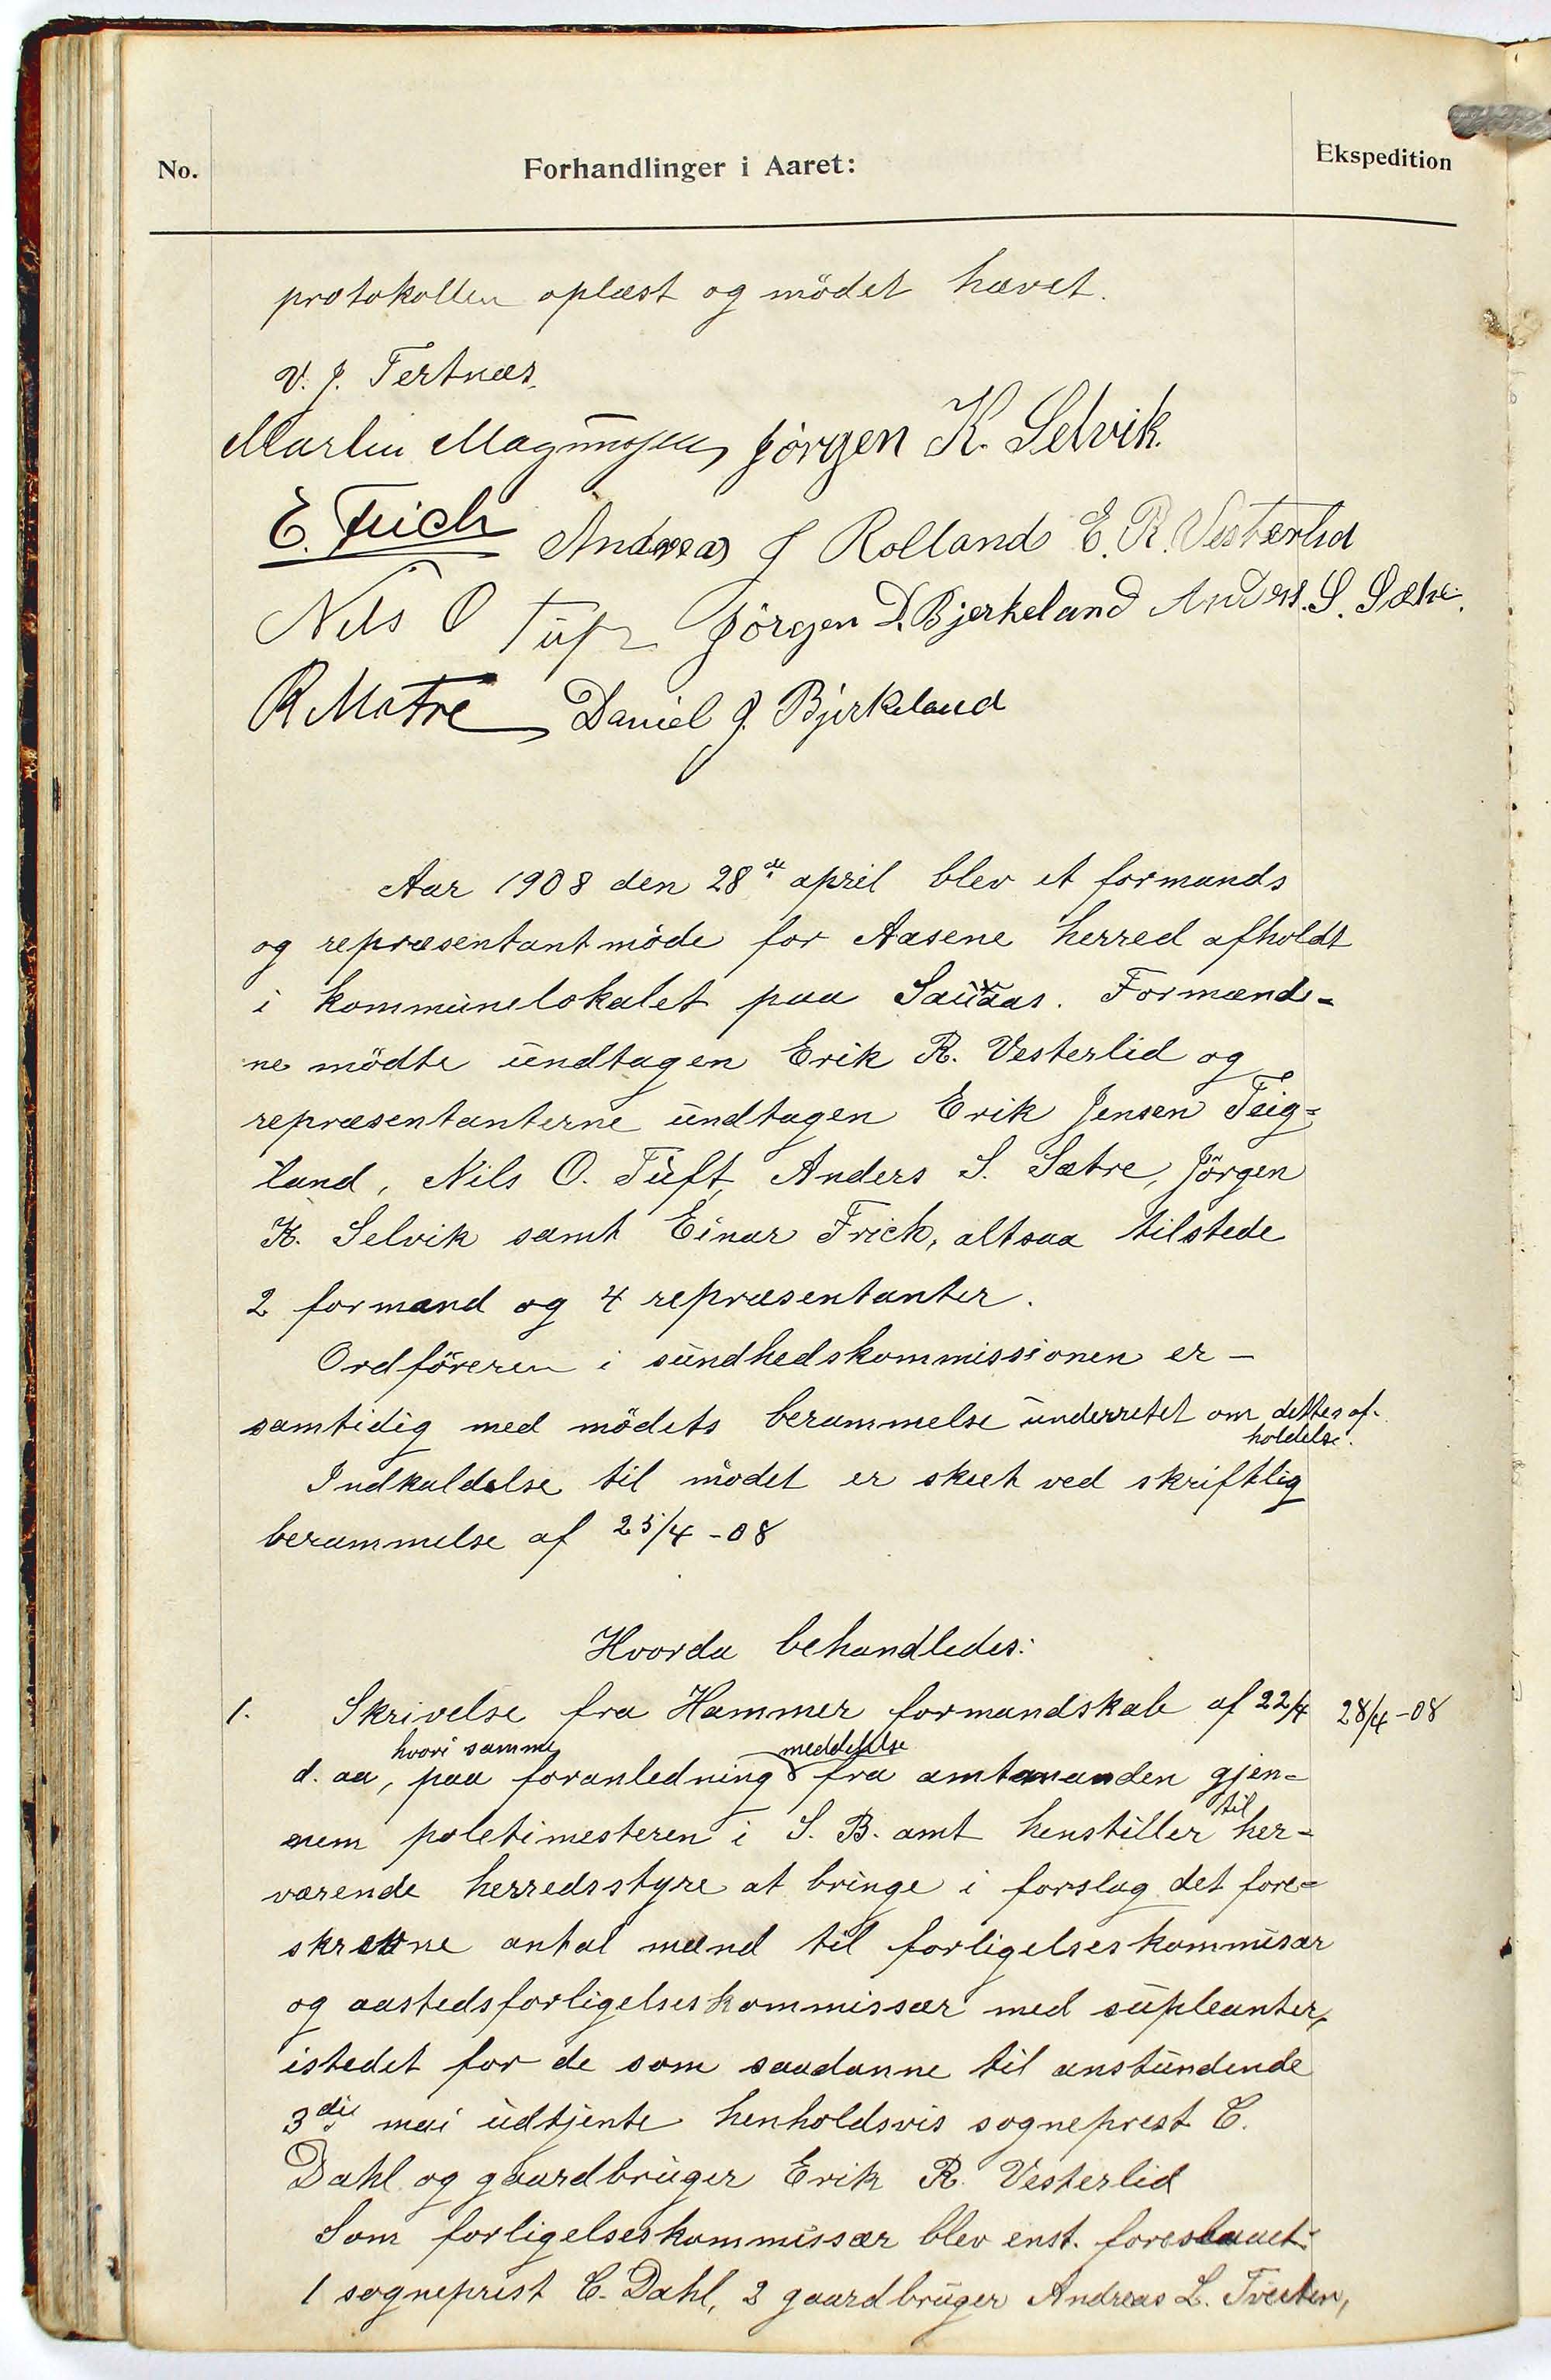 No.
Forhandlinger i Aaret:
Ekspedition
protokollen oplæst og mödet hævet.
V. J. Tertnæs
Martin Magnussen Jörgen K. Selvik.
E. Frich Andreas J Rolland E. R. Vesterlid
Nils O Tuft Jörgen D. Bjerkeland Anders. S. Sætre.
R Matre Daniel J. Bjerkeland
Aar 1908 den 28de april blev et formands
og repræsentantmöde for Aasene herred afholdt
i kommunelokalet paa Sauaas. Formænde-
ne mödte undtagen Erik R. Vesterlid og
repræsentanterne undtagen Erik Jensen Teig-
land, Nils O. Tuft, Anders S. Sætre, Jörgen
K. Selvik samt Einar Frick, altsaa tilstede
2 formænd og 4 repræsentanter.
Ordföreren i sundhedskommissionen er -
samtidig med mödets berammelse underrettet om dettes af-
holdelse.
Indkaldelse til mödet er skeet ved skriftlig
berammelse af 25/4 -08
Hvorda behandledes:
1. Skrivelse fra Hammer formandskab af 22/4 28/4 -08
hvori samme meddelelse
d. aa, paa foranledning fra amtmanden gjen-
nem poletimesteren i S. B. amt henstiller til her-
værende herredsstyre at bringe i forslag det fore-
skrevne antal mænd til forligelseskommisær
og aastedsforligelseskommissær med supleanter,
istedet for de som saadanne til anstundende
3die mai udtjente henholdsvis sogneprest C.
Dahl og gaardbruger Erik R. Vesterlid
Som forligelseskommissær blev enst. foreslaaet:
1 sogneprest C. Dahl, 2 gaardbruger Andreas L. Tveiten,